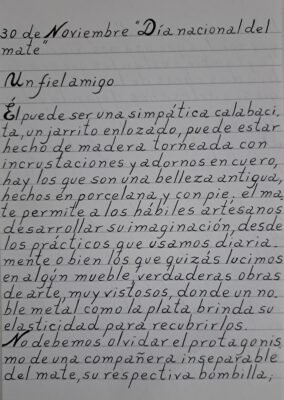 30 de Noviembre "Día nacional del
mate"
Un fiel amigo
Él puede ser una simpática calabaci_
ta, un jarrito enlozado, puede estar
hecho de madera torneada con
incrustaciones y adornos en cuero,
hay los que son una belleza antigua,
hechos en porcelana y con pie. el ma_
te permite a los hábiles artesanos
desarrollar su imaginación, desde
los prácticos que usamos diaria_
mente o bien los que quizás lucimos
en algún mueble, verdaderas obras
de arte, muy vistosos, donde un no_
ble metal como la plata brinda su
elasticidad para recubrirlos.
No debemos olvidar el protagonis_
mo de una compañera inseparable
del mate, su respectiva bombilla,